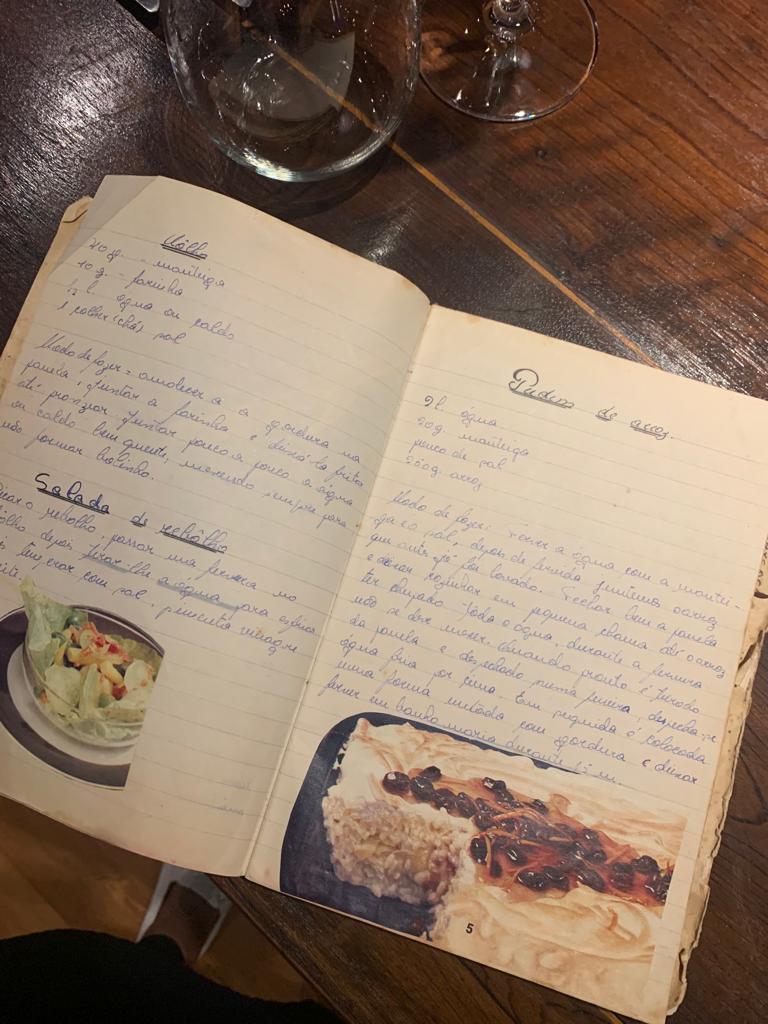 Môlho
40 g. - manteiga
40 g. - farinha
1/2 l. água ou caldo
1 colher (chá) sal
Modo de fazer = amolecer a a gordura na
panela, juntar a farinha e deixa-la fritar
até
Juntar pouco a pouco a água
ou caldo bem quente, mexendo sempre para
não formar bolinho.
Salada de repôlho
Picar o repolho, passar uma fervura no
môlho depois tirar-lhe a água para esfriar
temperar com sal, pimenta vinagre
Pudim de arroz.
2 l. água
50g. manteiga
pouco de sal
250g. arroz
Modo de fazer: Ferver a água com a mantei-
ga e o sal, depois de fervida juntamos o arroz
que antes já foi lavado. Fechar bem a panela
e deixar cozinhar em pequena chama até o arroz
ter chupado toda a água, durante a fervura
não se deve mexer. Quando pronto é tirado
da panela e despejado numa peneira, despeja-se
água fria por cima. Em seguida é colocada
numa forma untada com gordura e deixar
ferver em banho maria durante 15 m.
5